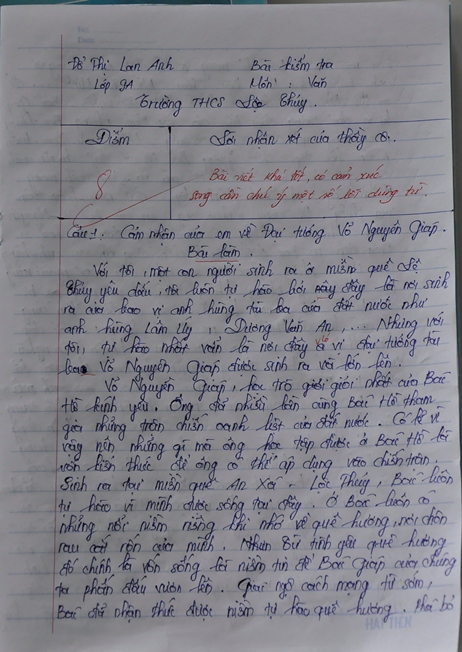 Đỗ Thị Lan Anh Bài kiểm tra
Lớp 9A Môn : Văn
Trường THCS Lộc Thủy.
Điểm Lời nhận xét của thầy cô.
8 Bài viết khá tốt, có cảm xúc
song cần chú ý một số lỗi dùng từ.
Câu 1: Cảm nhận của em về Đại tướng Võ Nguyên Giáp.
Bài làm.
Với tôi, một con người sinh ra ở miền quê Lệ
Thủy yêu dấu, tôi luôn tự hào bởi đây là nơi sinh
ra của bao vị anh hùng tài ba của đất nước như
anh hùng Lâm Úy, Dương Văn An,... Nhưng với
tôi, tự hào nhất vẫn là nơi đây có vị đại tướng tài
ba Võ Nguyên Giáp được sinh ra và lớn lên.
Võ Nguyên Giáp, học trò giỏi giỏi nhất của Bác
Hồ kính yêu. Ông đã nhiều lần cùng Bác Hồ tham
gia những trận chiến oanh liệt của đất nước. Có lẽ vì
vậy nên những gì mà ông học tập được ở Bác Hồ là
vốn kiến thức để ông có thể áp dụng vào chiến trận.
Sinh ra tại miền quê An Xá - Lộc Thủy, Bác luôn
tự hào vì mình được sống tại đây. Ở Bác luôn có
những nỗi niềm riêng khi nhớ về quê hương, nơi chôn
rau cắt rốn của mình. Nhưn Từ tình yêu quê hương
đó chính là vốn sống là niềm tin để Bác Giáp của chúng
ta phấn đấu vươn lên. Giác ngộ cách mạng từ sớm,
Bác đã nhận thức được niềm tự hào quê hương. bỏ
HẢI TIẾN